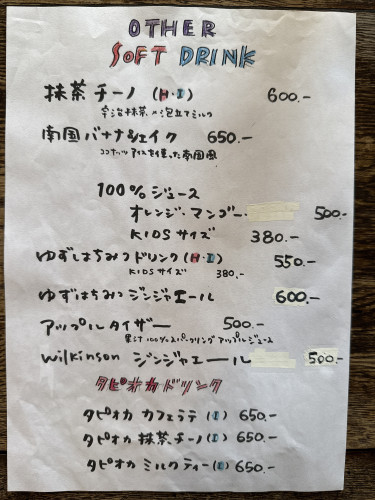 OTHER
SOFT DRINK
抹茶チーノ (H・I) 600.-
宇治抹茶×泡立てミルク
南国バナナシェイク 650.-
ココナッツアイスを使った南国風
100%ジュース
オレンジ・マンゴー 500.-
KIDSサイズ 380.-
ゆずはちみつドリンク(H・I) 550.-
KIDSサイズ 380.-
ゆずはちみつジンジャエール 600.-
アップルタイザー 500.-
果汁100%スパークリングアップルジュース
Wilkinson ジンジャエール 500.-
タピオカドリンク
タピオカ カフェラテ (I) 650.-
タピオカ 抹茶チーノ (I) 650.-
タピオカ ミルクティー (I) 650.-